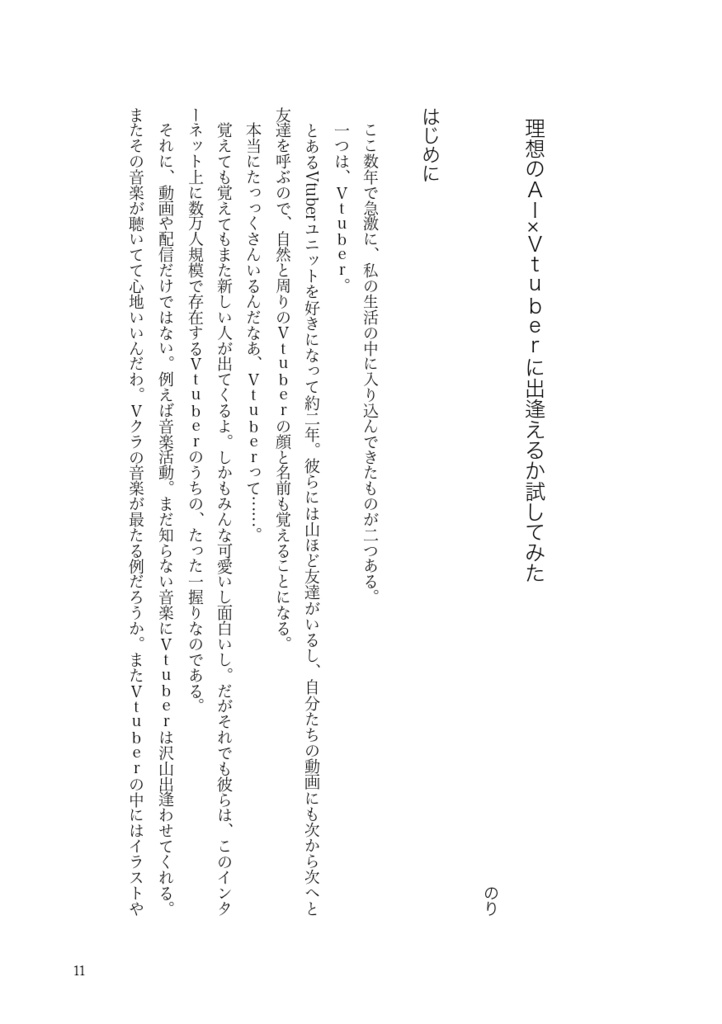 理想のAI×Vtuberに出逢えるか試してみた
のり
はじめに
ここ数年で急激に、私の生活の中に入り込んできたものが二つある。
一つは、Vtuber。
とあるVtuberユニットを好きになって約二年。彼らには山ほど友達がいるし、自分たちの動画にも次から次へと
友達を呼ぶので、自然と周りのVtuberの顔と名前も覚えることになる。
本当にたっっくさんいるんだなあ、Vtuberって……。
覚えても覚えてもまた新しい人が出てくるよ。しかもみんな可愛いし面白いし。だがそれでも彼らは、このインタ
ーネット上に数万人規模で存在するVtuberのうちの、たった一握りなのである。
それに、動画や配信だけではない。例えば音楽活動。まだ知らない音楽にVtuberは沢山出逢わせてくれる。
またその音楽が聴いてて心地いいんだわ。Vクラの音楽が最たる例だろうか。またVtuberの中にはイラストや
11